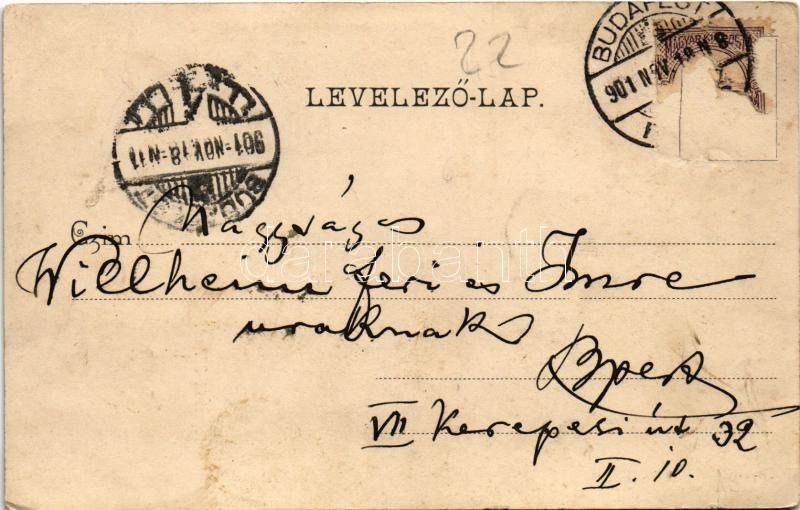 22
BUDAPEST
MAGYAR KIR. POSTA
901 NOV. 18 N 8
LEVELEZŐ-LAP.
901-NOV.18-N11
BUDAPEST
Czím Nagyságos
Willheim Feri és Imre
uraknak
Bpest
VII Kerepesi út 32
II. 10.
darabanth